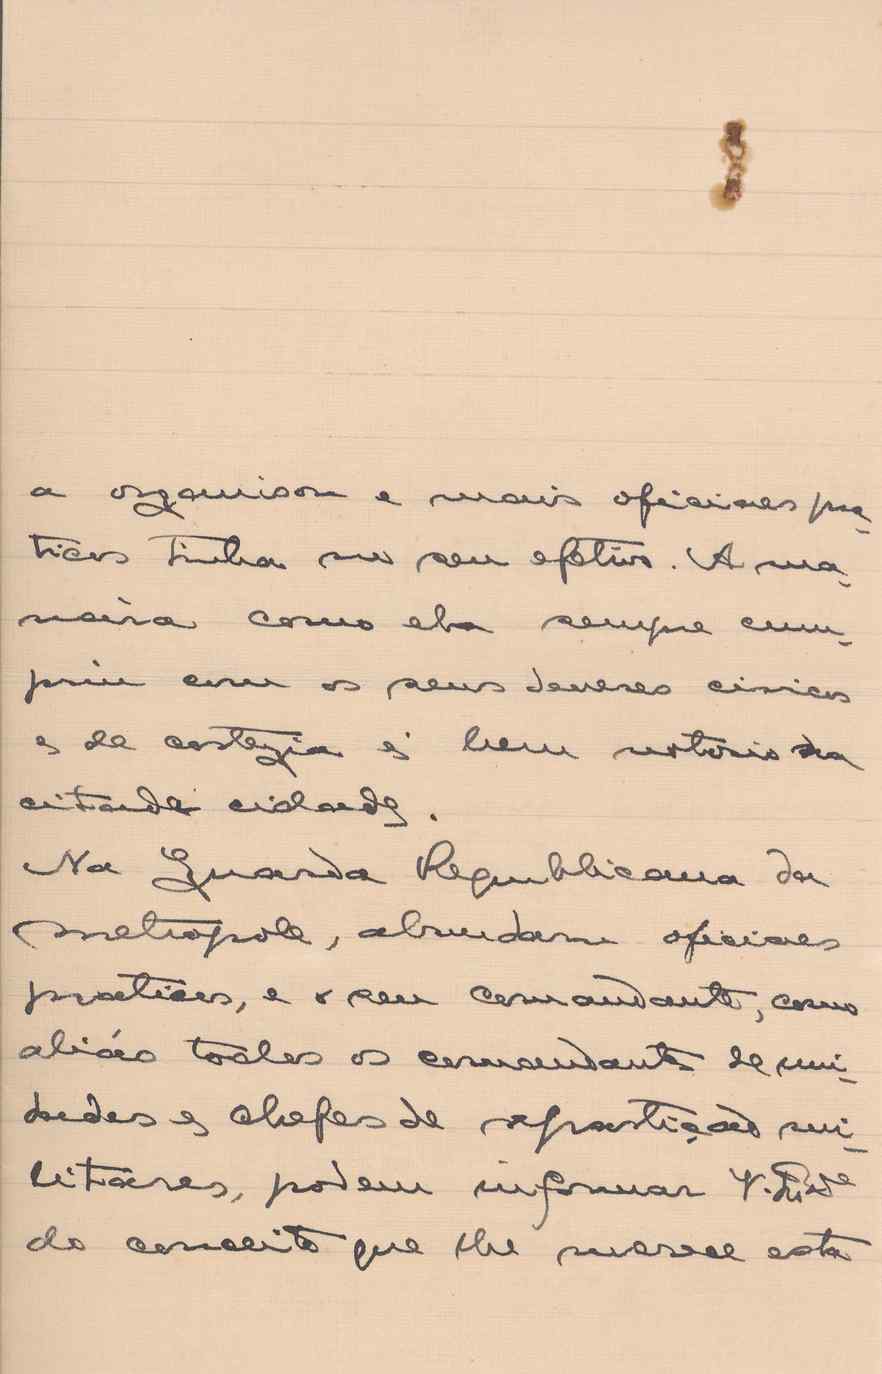 a organison e mais oficiaes pra-
ticos tinha no seu efétivo. A ma-
neira como ela sempre cum-
priu com os seus deveres civicos
e de cortezia é bem notorio na
citade cidade.
Na Guarda Republicana da
metropole, abundam oficiaes
praticos, e o seu comandante, como
aliáo todos os comandantes de uni-
dades e chefes de repartição mi-
litáres, podem informar V. Exª
do conceito que lhe merece esta